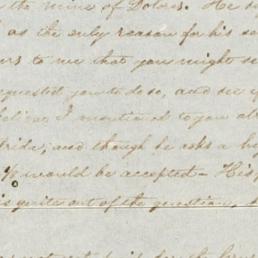 the mine of Dolores. He s
as the only reason for his se
rs to me that you might se
equested you to do so, and see if
elieve I mentioned to you ab
trida, and though he asks a hig
would be accepted - His
is quite out of the question,